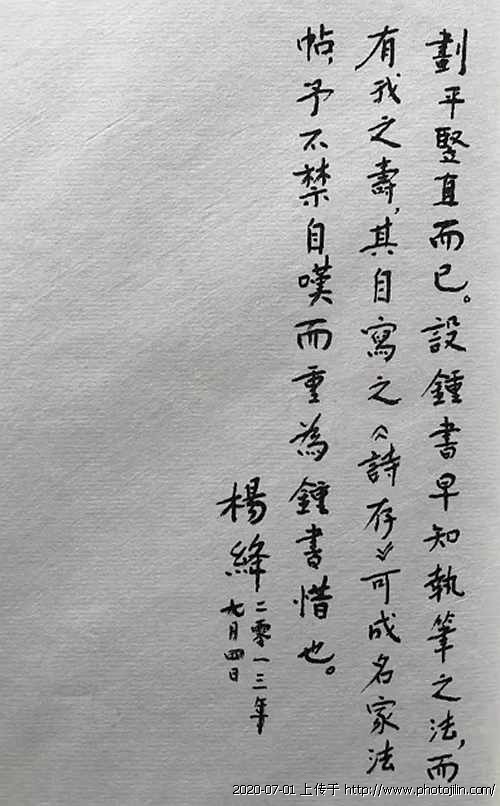 劃平豎直而已。設鍾書早知執筆之法,而
有我之壽,其自寫之《詩存》可成名家法
帖,予不禁自嘆而重為鍾書惜也。
楊絳
二零一三年
九月四日
2020-07-01 上传于 http://www.photojilin.com/